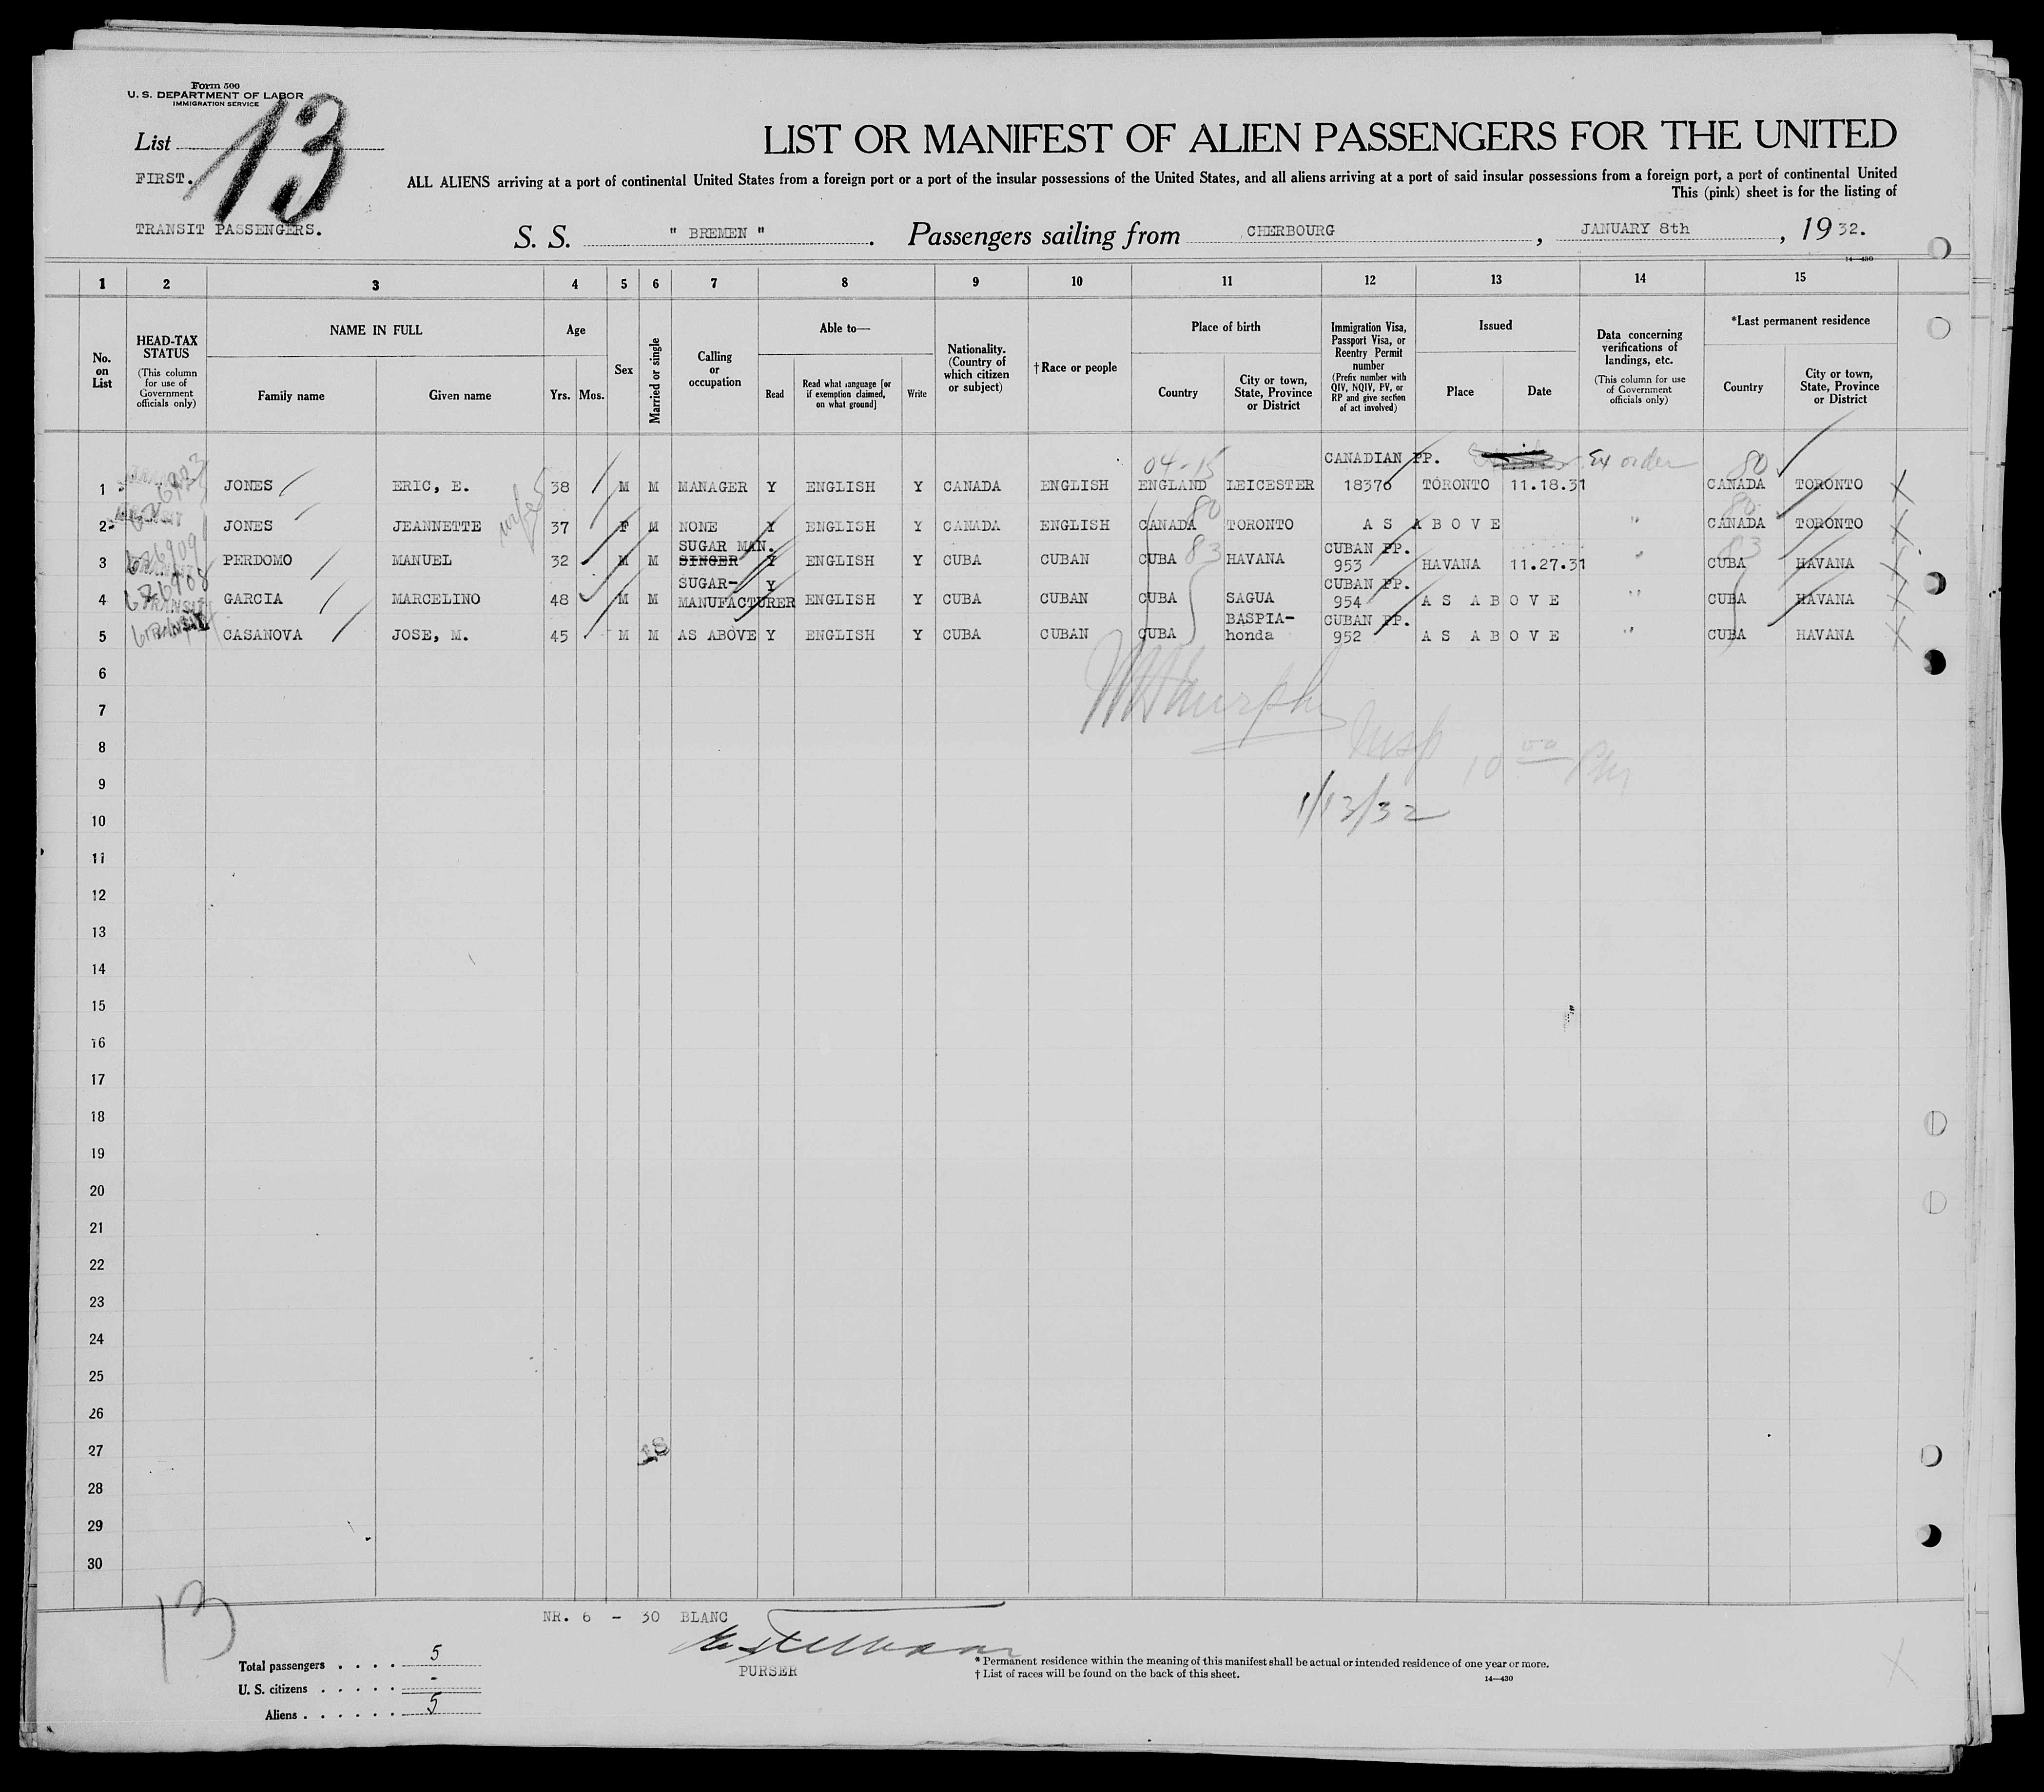 Form 500
U. S. DEPARTMENT OF LABOR
IMMIGRATION SERVICE
List 13
FIRST.
TRANSIT PASSENGERS.
LIST OR MANIFEST OF ALIEN PASSENGERS FOR THE UNITED
ALL ALIENS arriving at a port of continental United States from a foreign port or a port of the insular possessions of the United States, and all aliens arriving at a port of said insular possessions from a foreign port, a port of continental United
This (pink) sheet is for the listing of
S. S. " BREMEN " . Passengers sailing from CHERBOURG , JANUARY 8th , 19 32.
14—430
1 2 3 4 5 6 7 8 9 10 11 12 13 14 15
No. on List
HEAD-TAX STATUS
(This column for use of Government officials only)
NAME IN FULL
Family name
Given name
Age
Yrs. Mos.
Sex
Married or single
Calling or occupation
Able to—
Read
Read what language [or if exemption claimed, on what ground]
Write
Nationality. (Country of which citizen or subject)
†Race or people
Place of birth
Country
City or town, State, Province or District
Immigration Visa, Passport Visa, or Reentry Permit number
(Prefix number with QIV, NQIV, PV, or RP and give section of act involved)
Issued
Place
Date
Data concerning verifications of landings, etc.
(This column for use of Government officials only)
*Last permanent residence
Country
City or town, State, Province or District
04-15 CANADIAN PP. Ex order 80
1 JONES ERIC, E. 38 M M MANAGER Y ENGLISH Y CANADA ENGLISH ENGLAND LEICESTER 18376 TORONTO 11.18.31 CANADA TORONTO
wife 80 80
2 JONES JEANNETTE 37 F M NONE Y ENGLISH Y CANADA ENGLISH CANADA TORONTO AS ABOVE " CANADA TORONTO
SUGAR MAN. 83 CUBAN PP. 83
3 PERDOMO MANUEL 32 M M SINGER Y ENGLISH Y CUBA CUBAN CUBA HAVANA 953 HAVANA 11.27.31 " CUBA HAVANA
SUGAR- Y CUBAN PP.
4 TRANSIT GARCIA MARCELINO 48 M M MANUFACTURER ENGLISH Y CUBA CUBAN CUBA SAGUA 954 AS ABOVE " CUBA HAVANA
BASPIA- CUBAN PP.
5 CASANOVA JOSE, M. 45 M M AS ABOVE Y ENGLISH Y CUBA CUBAN CUBA honda 952 AS ABOVE " CUBA HAVANA
6
7
Murphy
8
Insp 10 00 PM
9
10
1/13/32
11
12
13
14
15
16
17
18
19
20
21
22
23
24
25
26
27
28
29
30
13
NR. 6 - 30 BLANC
PURSER
Total passengers . . . . 5
U. S. citizens . . . . . -
Aliens . . . . . . 5
* Permanent residence within the meaning of this manifest shall be actual or intended residence of one year or more.
† List of races will be found on the back of this sheet.
14—430